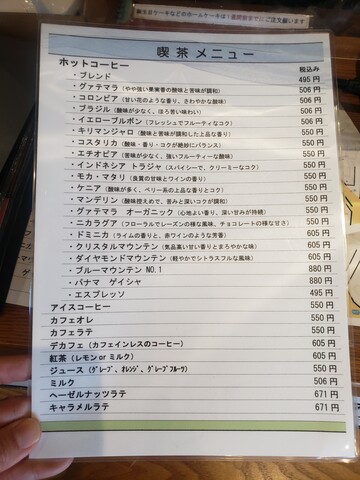 喫茶メニュー
ホットコーヒー 税込み
・ブレンド 495円
・グァテマラ（やや強い果実香の酸味と苦味が調和） 506円
・コロンビア（甘い花のような香り、さわやかな酸味） 506円
・ブラジル（酸味が少なく、ほろ苦い味わい） 506円
・イエローブルボン（フレッシュでフルーティなコク） 506円
・キリマンジャロ（酸味と苦味が調和した上品な香り） 550円
・コスタリカ（酸味・香り・コクが絶妙にバランス） 550円
・エチオピア（苦味が少なく、強いフルーティーな酸味） 550円
・インドネシア トラジャ（スパイシーで、クリーミーなコク） 550円
・モカ・マタリ（良質の甘味とワインの香り） 550円
・ケニア（酸味が多く、ベリー系の上品な香りとコク） 550円
・マンデリン（酸味控えめで、苦みと深いコクが調和） 550円
・グァテマラ オーガニック（心地よい香り、深い甘みが持続） 550円
・ニカラグア（フローラルでレーズンの様な風味、チョコレートの様な甘さ） 550円
・ドミニカ（ライムの香りと、赤ワインのような芳香） 605円
・クリスタルマウンテン（気品高い甘い香りとまろやかな味） 605円
・ダイヤモンドマウンテン（軽やかでシトラスフルな風味） 605円
・ブルーマウンテン NO.1 880円
・パナマ ゲイシャ 880円
・エスプレッソ 495円
アイスコーヒー 550円
カフェオレ 550円
カフェラテ 550円
デカフェ（カフェインレスのコーヒー） 605円
紅茶（レモン or ミルク） 605円
ジュース（グレープ、オレンジ、グレープフルーツ） 550円
ミルク 506円
ヘーゼルナッツラテ 671円
キャラメルラテ 671円